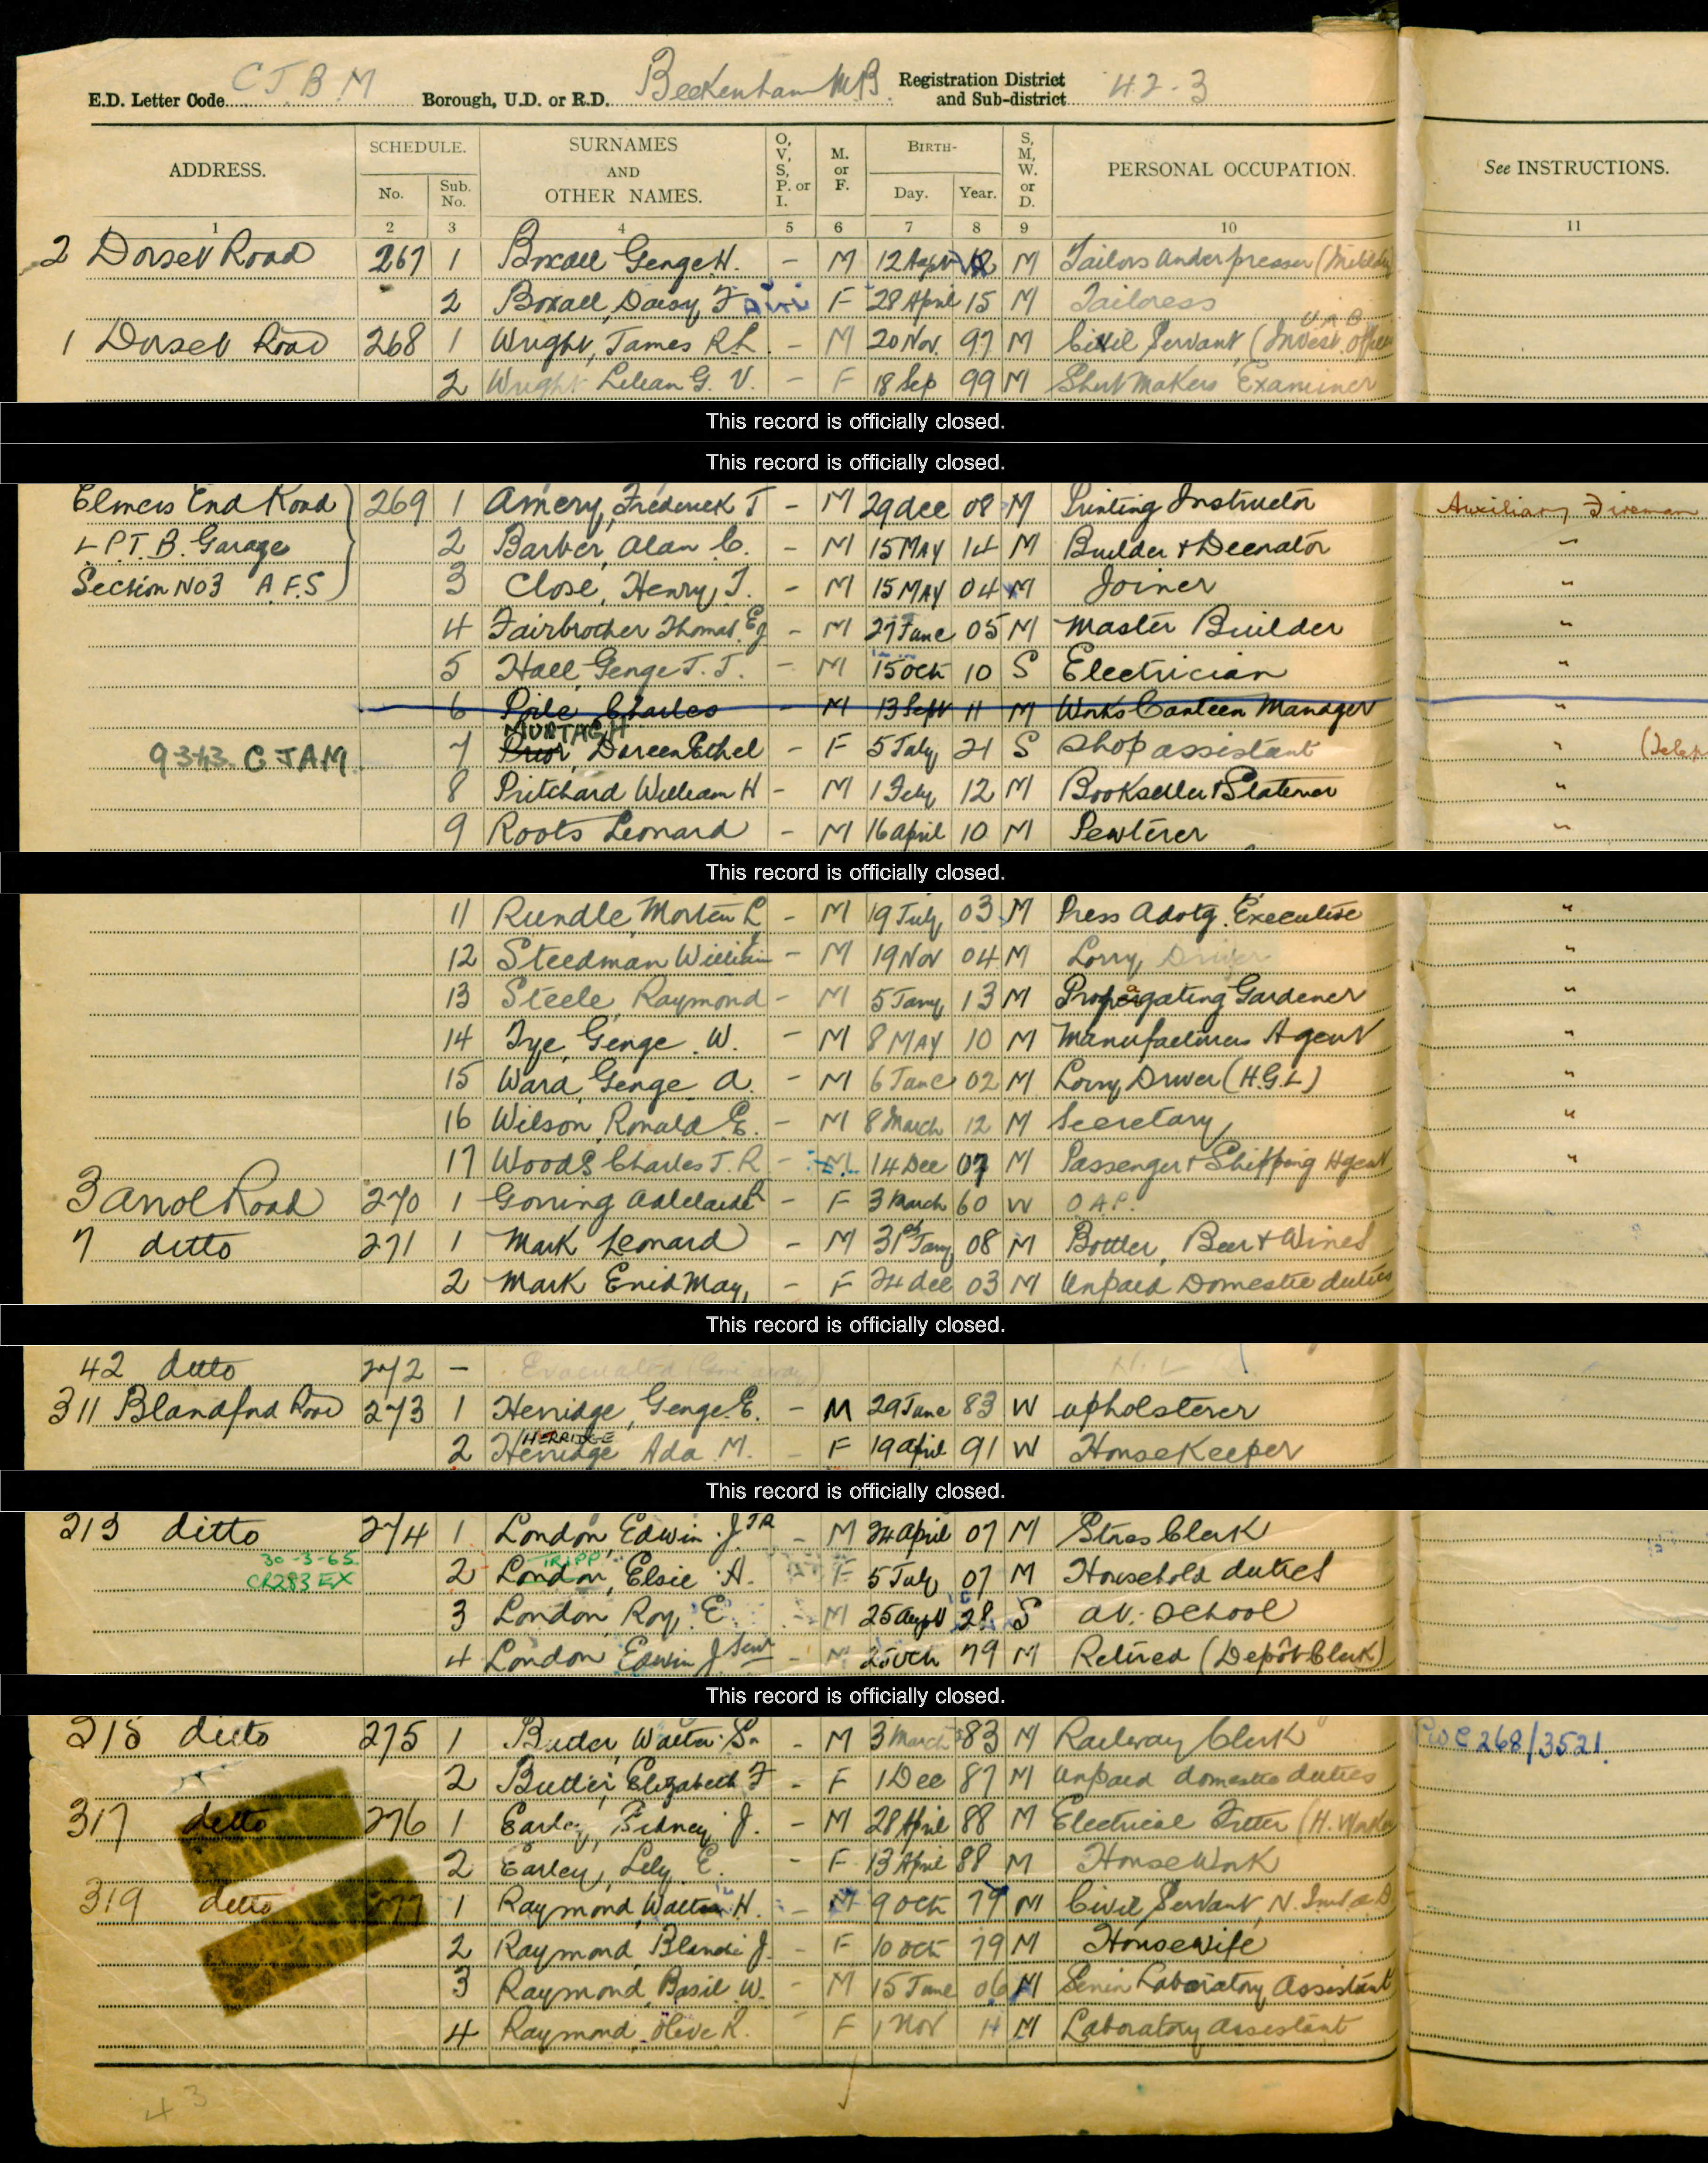 E.D. Letter Code C J B M Borough, U.D. or R.D. Beckenham M.B. Registration District and Sub-district 42-3
ADDRESS. SCHEDULE. No. Sub. No. SURNAMES AND OTHER NAMES. O, V, S, P. or I. M. or F. BIRTH- Day. Year. S, M, W. or D. PERSONAL OCCUPATION. See INSTRUCTIONS.
1 2 3 4 5 6 7 8 9 10 11
2 Dorset Road 267 1 Boxall George H. - M 12 Augst 12 M Tailors Under presser
2 Boxall, Daisy F F 28 April 15 M Tailoress
U.A.B
1 Dorset Road 268 1 Wright, James R.L. - M 20 Nov. 97 M Civil Servant, (Invest. Officer
2 Wright Lilian G. V. - F 18 Sep 99 M Shirt Makers Examiner
This record is officially closed.
This record is officially closed.
Elmers End Road 269 1 Amery, Frederick T - M 29 Dec 08 M Printing Instructor Auxiliary Fireman
L.P.T.B. Garage 2 Barber, Alan C. - M 15 MAY 14 M Builder + Decorator "
Section No 3 A.F.S 3 Close, Henry J. - M 15 MAY 04 M Joiner "
4 Fairbrother Thomas E J - M 27 June 05 M Master Builder "
5 Hall, George J. J. - M 15 Oct 10 S Electrician "
6 Pile Charles - M 13 Sept 11 M Works Canteen Manager "
MURTAGH
9343 C JAM 7 Prior, Doreen Ethel - F 5 July 21 S Shop assistant " (Telep
8 Pritchard William H - M 1 Feby 12 M Bookseller + Stationer "
9 Roots Leonard - M 16 April 10 M Pewterer "
This record is officially closed.
11 Rundle, Morten L - M 19 July 03 M Press Advtg. Executive "
12 Steedman William - M 19 Nov 04 M Lorry Driver "
13 Steele, Raymond - M 5 Jany 13 M Propagating Gardener "
14 Tye, George W. - M 8 MAY 10 M Manufacturers Agent "
15 Ward, George A. - M 6 June 02 M Lorry Driver (H.G.L) "
16 Wilson, Ronald E. - M 8 March 12 M Secretary "
17 Woods Charles J. R - M 14 Dec 07 M Passenger + Shipping Agent "
3 Arrol Road 270 1 Goring Adelaide R - F 3 March 60 W O.A.P.
7 ditto 271 1 Mark Leonard - M 31st Jany 08 M Bottler, Beer + Wines
2 Mark Enid May, - F 24 Dec 03 M Unpaid Domestic duties
This record is officially closed.
42 ditto 272 - Evacuated (Gone away)
311 Blandford Road 273 1 Herridge, George E. - M 29 June 83 W Upholsterer
HERRIDGE
2 Herridge Ada M. - F 19 April 91 W Housekeeper
This record is officially closed.
213 ditto 274 1 London, Edwin J JNR - M 24 April 07 M Stores Clerk
30-3-65 TRIPP
CR283 EX 2 London, Elsie A. F 5 July 07 M Household duties
3 London, Roy E M 25 Augst 28 S At School
4 London Edwin J Senr - M 25 Oct 79 M Retired (Depôt Clerk)
This record is officially closed.
215 ditto 275 1 Butler, Walter S. - M 3 March 83 M Railway Clerk 268/3521
2 Butler, Elizabeth F - F 1 Dec 87 M Unpaid domestic duties
317 ditto 276 1 Earley, Sidney J. - M 28 April 88 M Electrical Fitter
2 Earley, Lily E. - F 13 April 88 M Housework
319 ditto 277 1 Raymond, Walter H. - M 9 Oct 79 M Civil Servant,
2 Raymond, Blanche J. - F 10 Oct 79 M Housewife
3 Raymond, Basil W. - M 15 June 06 M Senior Laboratory Assistant
4 Raymond, Olive R. - F 1 Nov 11 M Laboratory Assistant
43